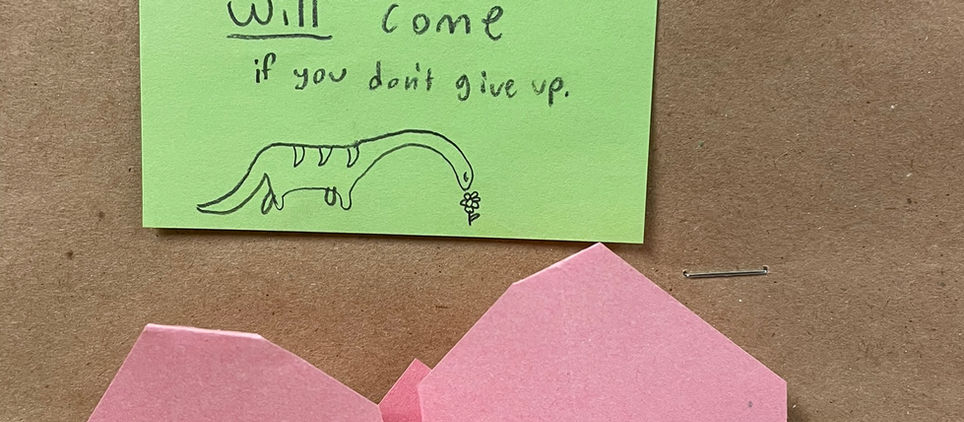 Will come
if you don't give up.